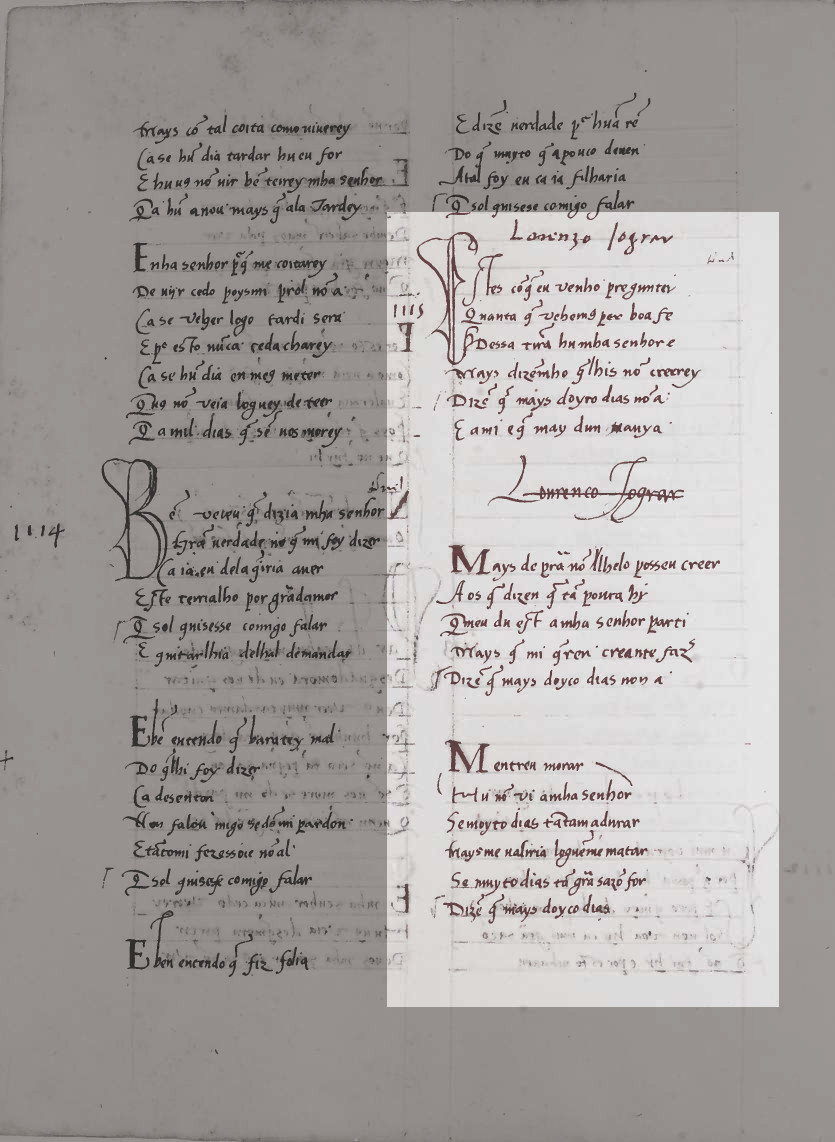 Mays cõ tal coita como uiuerey
Ca se hũ dia tardar hu eu for
E hu uꝯ nõ uir bẽ terrey mha senhor
Q̃a hũ anou mays q̃ ala Tardey
Enha senhor pq̃ me coitarey
De uijr cedo poys mi prol nõ a
Ca se veher logo tardi sera
E pᵉ esto nũca ceda charey
Ca se hũ dia en meꝯ meter
Quꝯ nõ veia loguey de teer
Q̃ a mil dias q̃ sẽ uos morey
1114
Bẽ veieu q̃ dizia mha senhor
Grã uerdade no q̃ mi foy dizer
Ca ia eu dela q̃iria auer
Este terrialho por grãdamor
Q̃ sol quisesse comigo falar
E quitarlhia delhal demandar
Ebẽ entendo q̃ baratey mal
Do q̃lhi foy dizer
Ca desenton
Non falou migo sedꝯmi pardon
Etãtomi fezessoie nõ al
Q̃ sol quisese comigo falar
Eben entendo q̃ fiz folia
E dizẽ uerdade pᵉ hũa rẽ
Do q̃ muyto q̃ a pouco deuen
Atal foy eu ca ia filharia
Q̃ sol quisese comigo falar
Lorenzo Jograr
1115
Tres cõq̃ eu venho preguntei
Quanta q̃ vehemꝯ per boa fe
Dessa tirã hu mha senhor e
Mays dizemho q̃lhis nõ creerey
Dizẽ q̃ mays doyto dias nõ a
E a mi eq̃ may dun anya
Lourenco Jograr
Mays de prã nõ lhelo posseu creer
Aos q̃ dizen q̃ tã pouca hy
Q̃meu du est a mha senhor parti
Mays q̃ mi q̃ren creante fazᵉ
Dizẽ q̃ mays doyco dias non a
Mentreu morar
Hu nõ vi a mha senhor
Se moyto dias tãtam adurar
Mays me ualiria loguẽme matar
Se muyto dias tã grã sazõ for
Dizẽ q̃ mays doyco dias